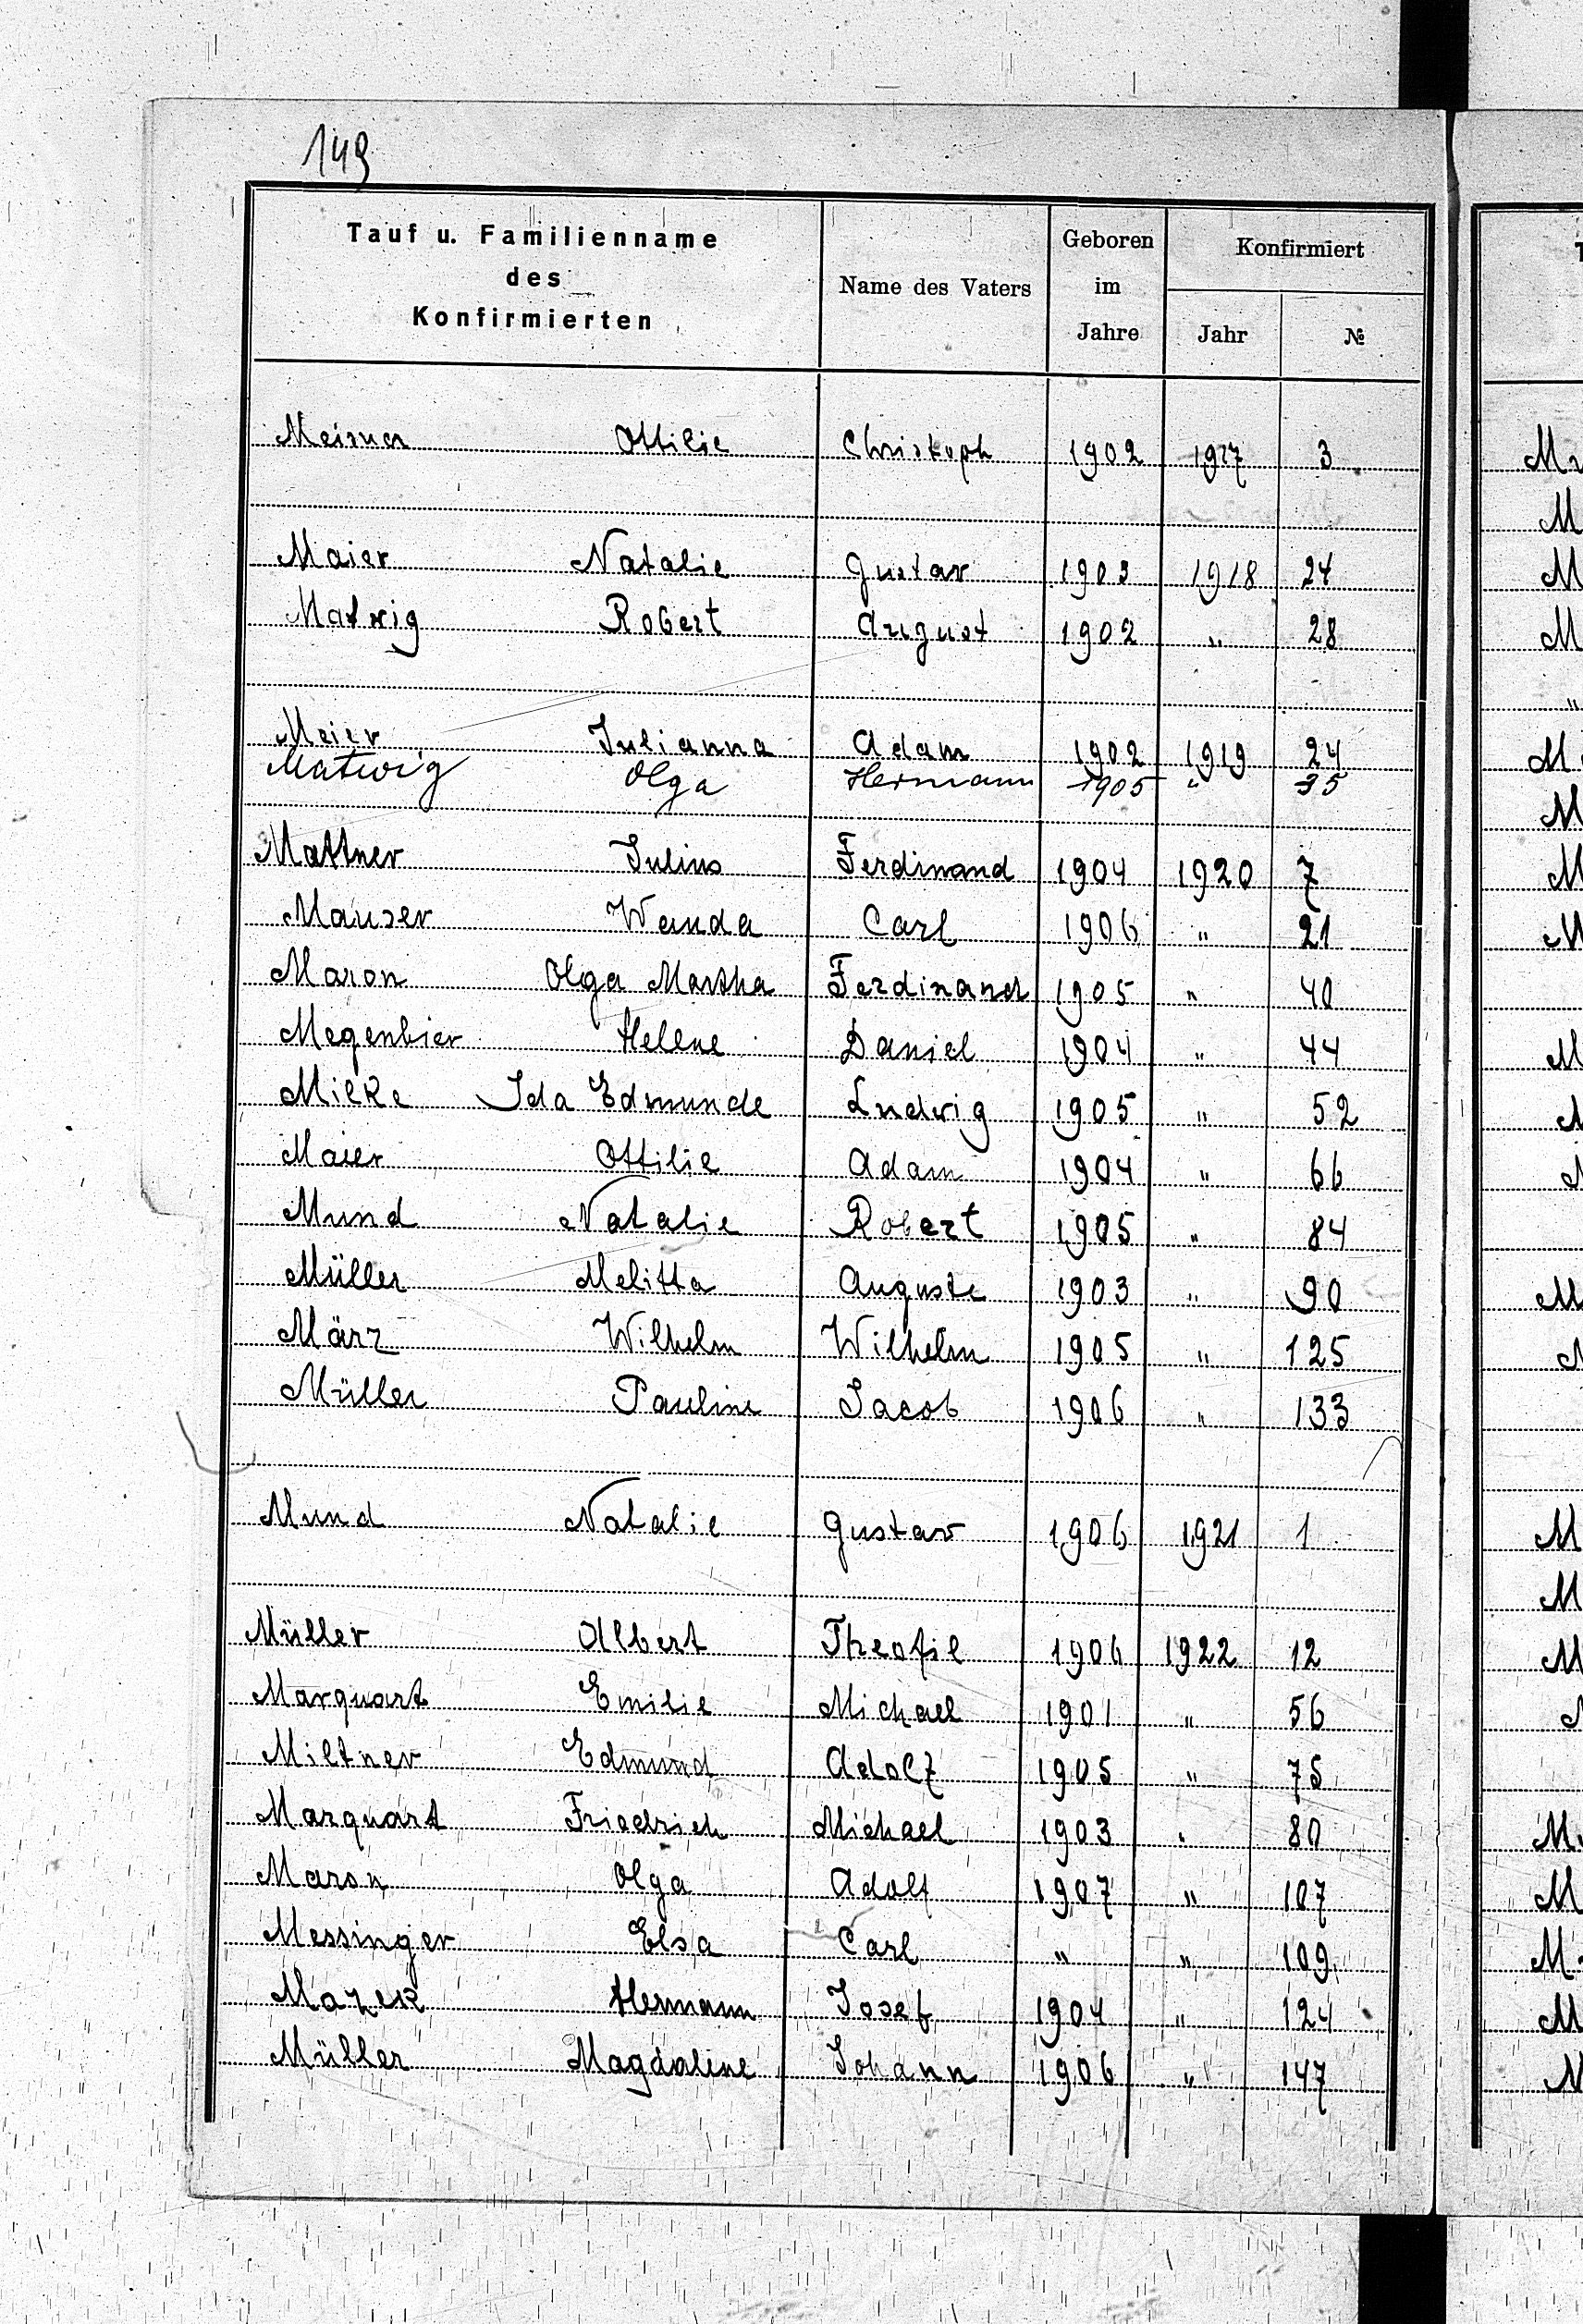 149
Tauf u. Familienname des Konfirmierten | Name des Vaters | Geboren im Jahre | Konfirmiert Jahr | №
Ottilie Christoph 1902 1917 3
Maier Natalie Gustav 1903 1918 24
Matwig Robert August 1902 " 28
Meier Julianna Adam 1902 1919 24
Matwig Olga Hermann 1905 " 35
Mattner Julius Ferdinand 1904 1920 7
Mauser Wanda Carl 1906 " 21
Maron Olga Martha Ferdinand 1905 " 40
Megenbier Helene Daniel 1904 " 44
Milke Ida Edmunde Ludwig 1905 " 52
Maier Ottilie Adam 1904 " 66
Mund Natalie Robert 1905 " 84
Müller Melitta Auguste 1903 " 90
März Wilhelm Wilhelm 1905 " 125
Müller Pauline Jacob 1906 " 133
Mund Natalie Gustav 1906 1921 1
Müller Albert Theofil 1906 1922 12
Marquart Emilie Michael 1901 " 56
Miltner Edmund Adolf 1905 " 75
Marquart Friedrich Michael 1903 " 80
Maron Olga Adolf 1907 " 107
Messinger Elsa Carl " " 109
Mazek Hermann Josef 1904 " 124
Müller Magdalene Johann 1906 " 147